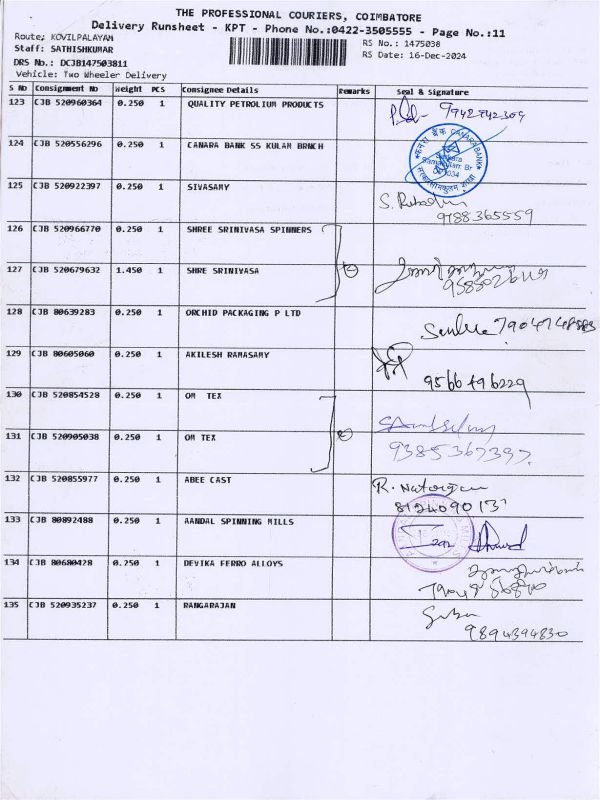 THE PROFESSIONAL COURIERS, COIMBATORE
Delivery Runsheet - KPT - Phone No.:0422-3505555 - Page No.:11
Route: KOVILPALAYAM
Staff: SATHISHKUMAR
RS No.: 1475038
DRS No.: DCJB147503811
RS Date: 16-Dec-2024
Vehicle: Two Wheeler Delivery
S No Consignment No Weight PCS Consignee Details Remarks Seal & Signature
123 CJB 520960364 0.250 1 QUALITY PETROLIUM PRODUCTS
124 CJB 520556296 0.250 1 CANARA BANK SS KULAM BRNCH
CANARA BANK
125 CJB 520922397 0.250 1 SIVASAMY
9788365559
126 CJB 520966770 0.250 1 SHREE SRINIVASA SPINNERS
127 CJB 520679632 1.450 1 SHRE SRINIVASA
128 CJB 80639283 0.250 1 ORCHID PACKAGING P LTD
129 CJB 80605060 0.250 1 AKILESH RAMASAMY
9566496229
130 CJB 520854528 0.250 1 OM TEX
131 CJB 520905038 0.250 1 OM TEX
9385367397.
132 CJB 520855977 0.250 1 ABEE CAST
133 CJB 80892488 0.250 1 AANDAL SPINNING MILLS
134 CJB 80680428 0.250 1 DEVIKA FERRO ALLOYS
135 CJB 520935237 0.250 1 RANGARAJAN
9894394830